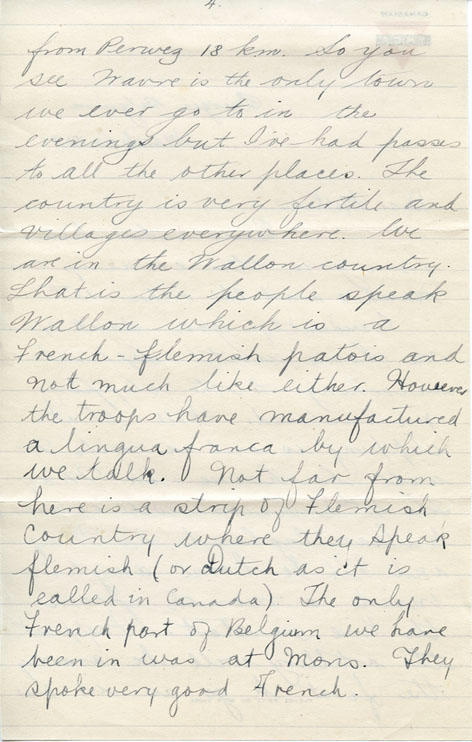 4.
from Perwez 18 km. So you
see Wavre is the only town
we ever go to in the
evenings but I've had passes
to all the other places. The
country is very fertile and
villages everywhere. We
are in the Wallon country.
That is the people speak
Wallon which is a
French-flemish patois and
not much like either. However
the troops have manufactured
a lingua franca by which
we talk. Not far from
here is a strip of Flemish
Country where they speak
flemish (or Dutch as it is
called in Canada) The only
French part of Belgium we have
been in was at Mons. They
spoke very good French.